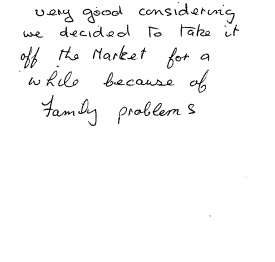 very good considering
we decided to take it
off the Market for a
while because of
Family problems